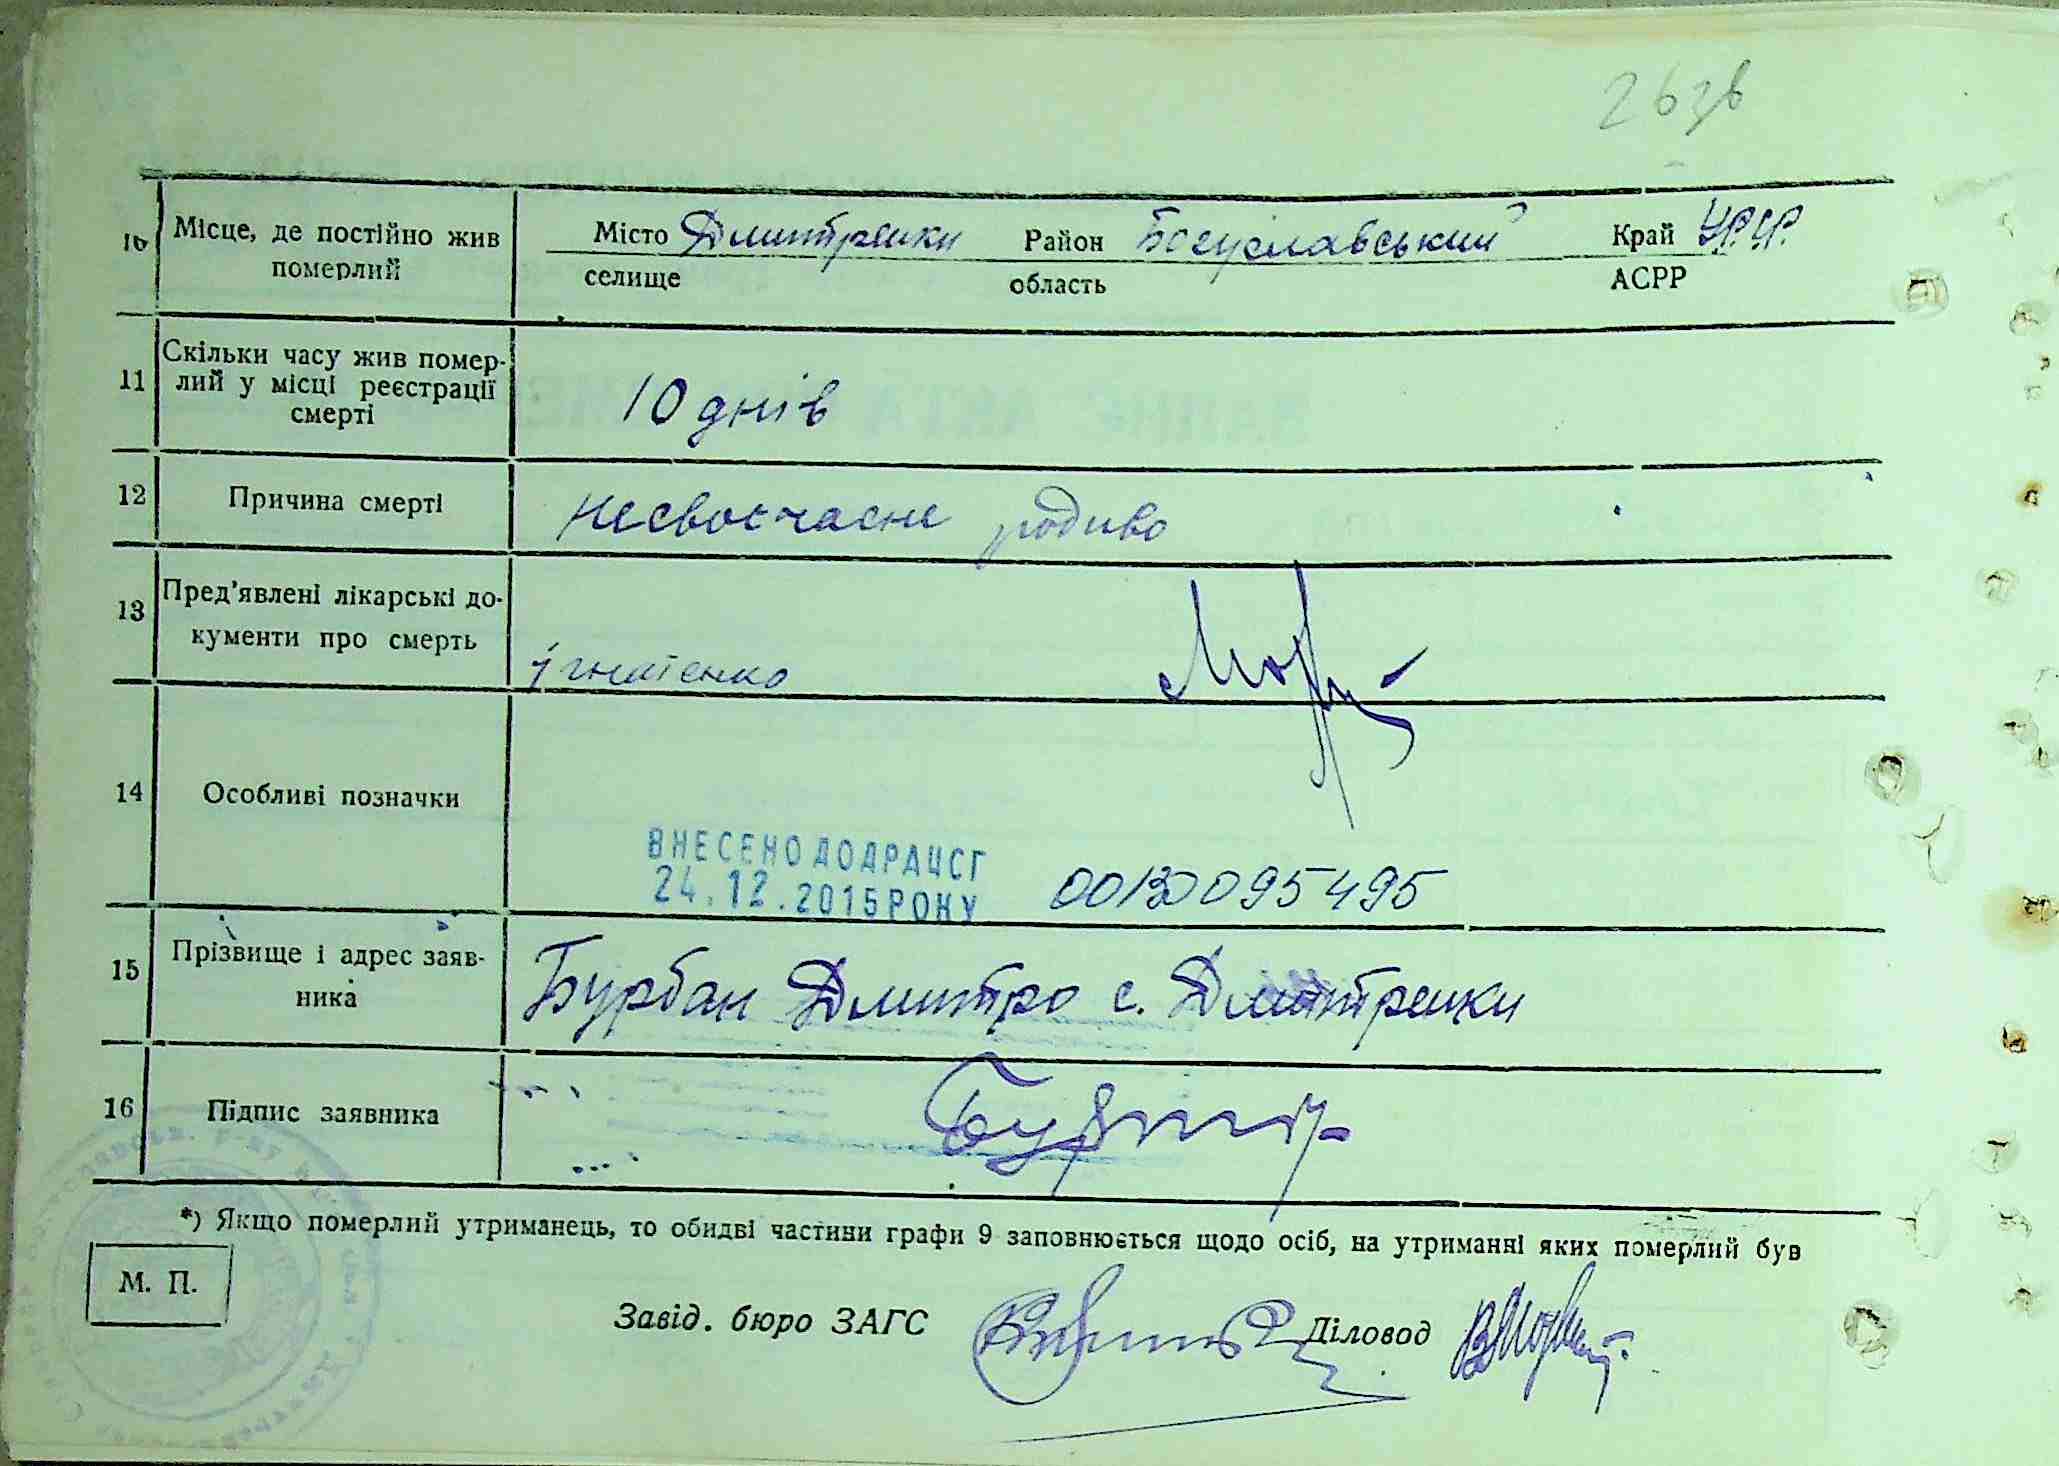 26зв
10 Місце, де постійно жив померлий
Місто Дмитренки Район Богуславський Край УРСР
селище область АСРР
11 Скільки часу жив помер-
лий у місці реєстрації
смерті
10 днів
12 Причина смерті
Несвоєчасне родиво
13 Пред'явлені лікарські до-
кументи про смерть
ігнатенко
14 Особливі позначки
ВНЕСЕНО ДО ДРАЦСГ
24.12.2015 РОКУ 00130095495
15 Прізвище і адрес заяв-
ника
Бурбан Дмитро с. Дмитренки
16 Підпис заявника
*) Якщо померлий утриманець, то обидві частини графи 9 заповнюється щодо осіб, на утриманні яких померлий був
М. П.
Завід. бюро ЗАГС Діловод